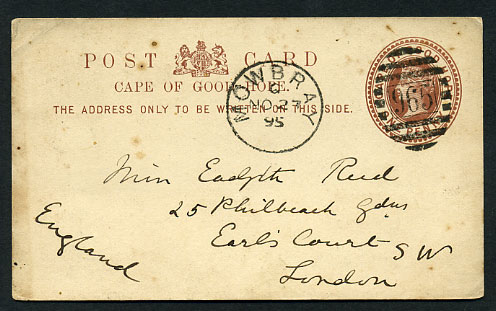 POST CARD
CAPE OF GOOD HOPE.
THE ADDRESS ONLY TO BE WRITTEN ON THIS SIDE.
MOWBRAY
C
NO 27
95
965
PENNY
Miss Eadyth Reid
25 Philbeach Gdns
Earl's Court SW
London
England